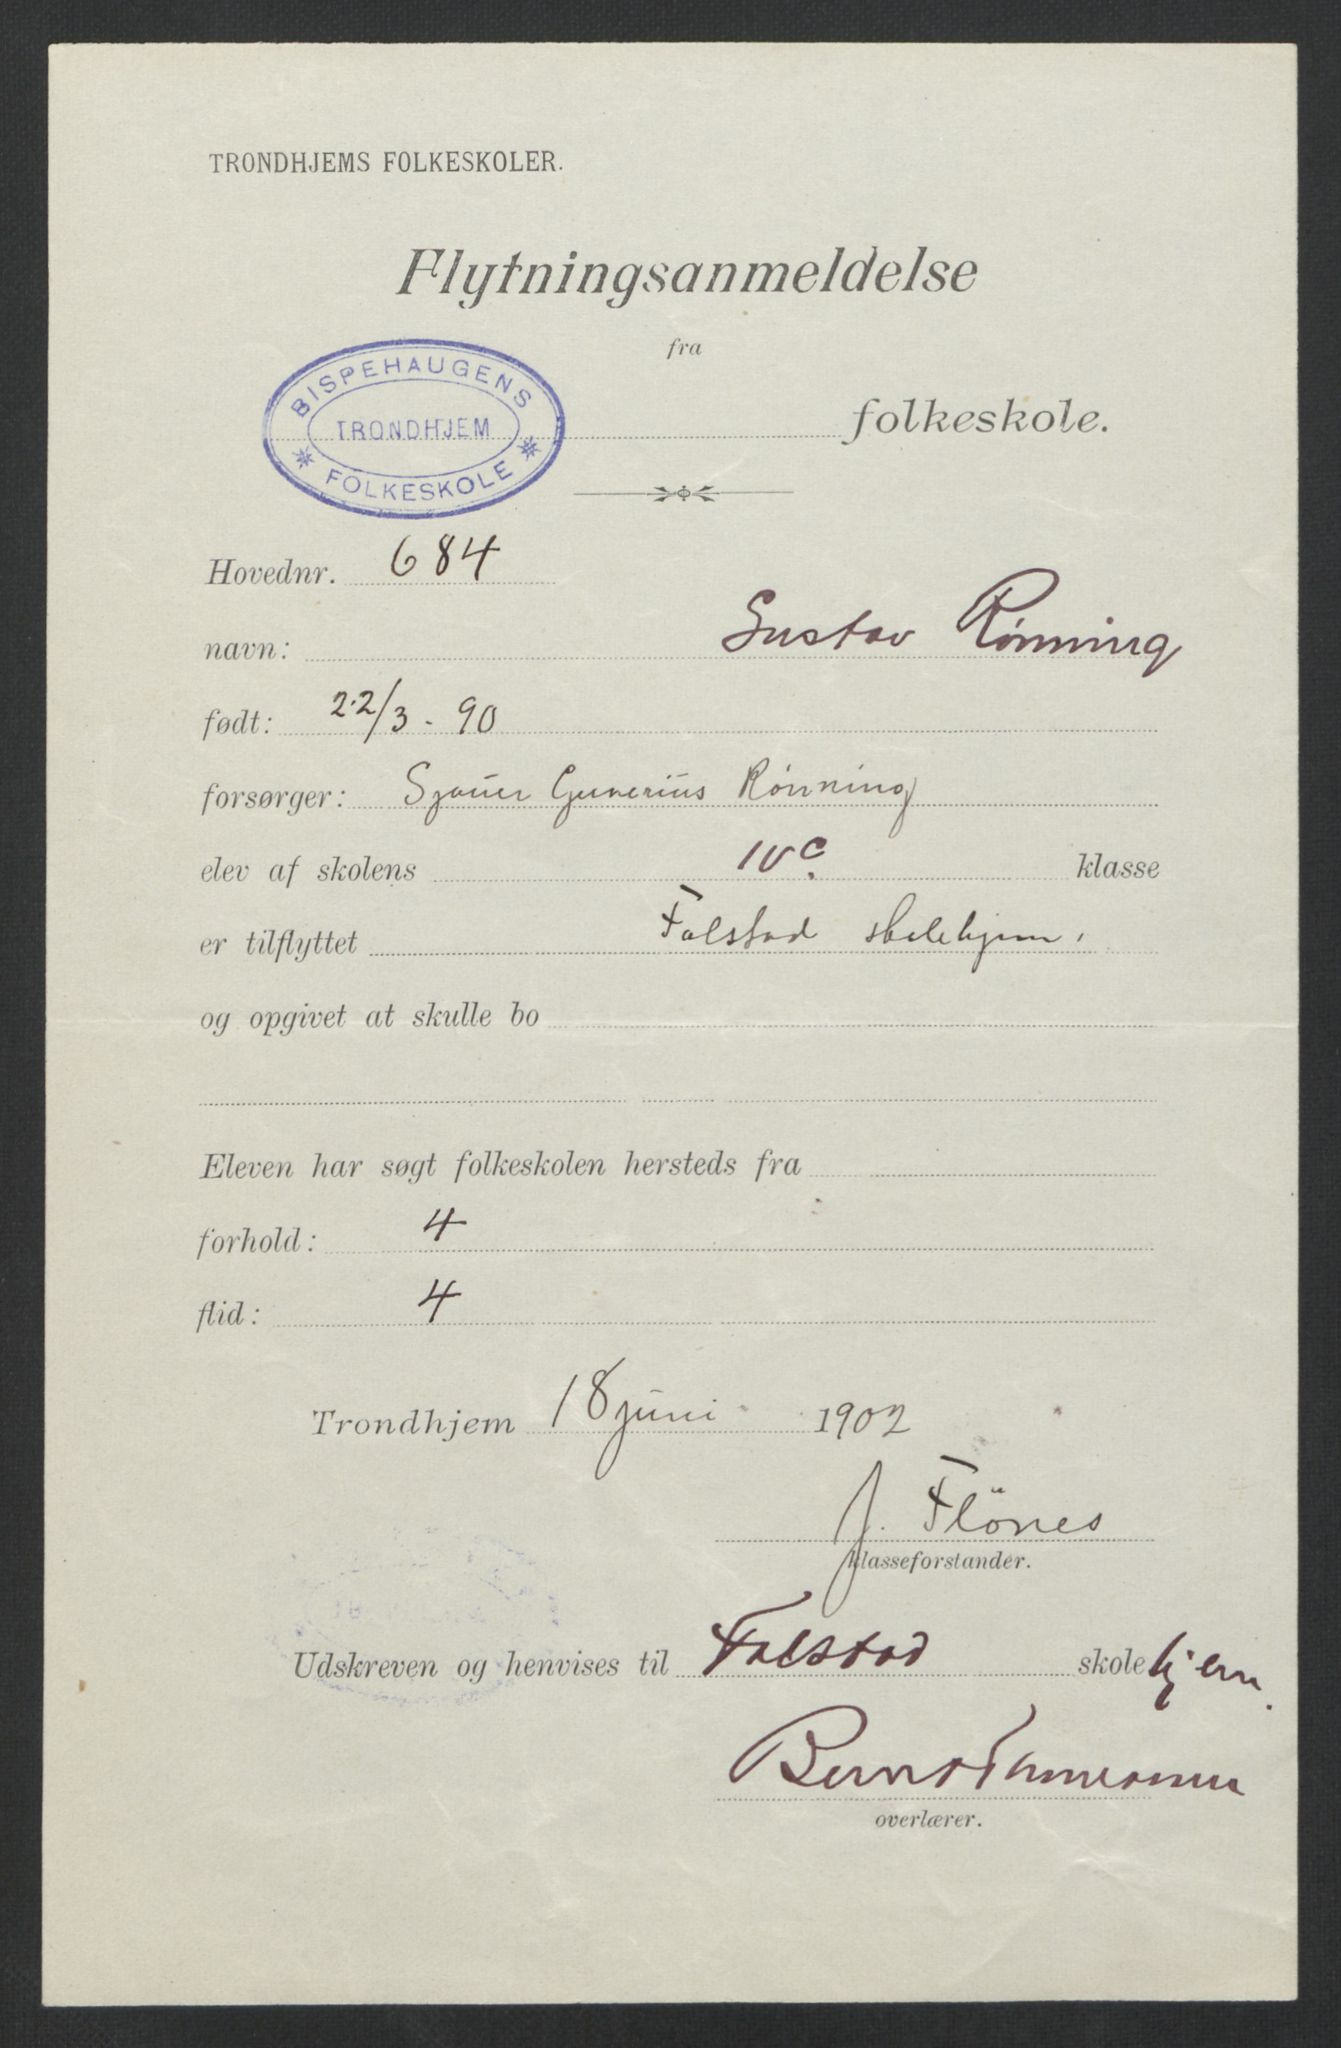 TRONDHJEMS FOLKESKOLER.
Flytningsanmeldelse
fra
BISPEHAUGENS
TRONDHJEM
FOLKESKOLE
folkeskole.
Hovednr. 684
navn: Gustav Rønning
født: 22/3 - 90
forsørger: Sjauer Gunerius Rønning
elev af skolens IVc. klasse
er tilflyttet Falstad skolehjem.
og opgivet at skulle bo
Eleven har søgt folkeskolen hersteds fra
forhold: 4
flid: 4
Trondhjem 18 juni 1902
J. Flönes
klasseforstander.
Udskreven og henvises til Falstad skolehjem.
Bernt
overlærer.